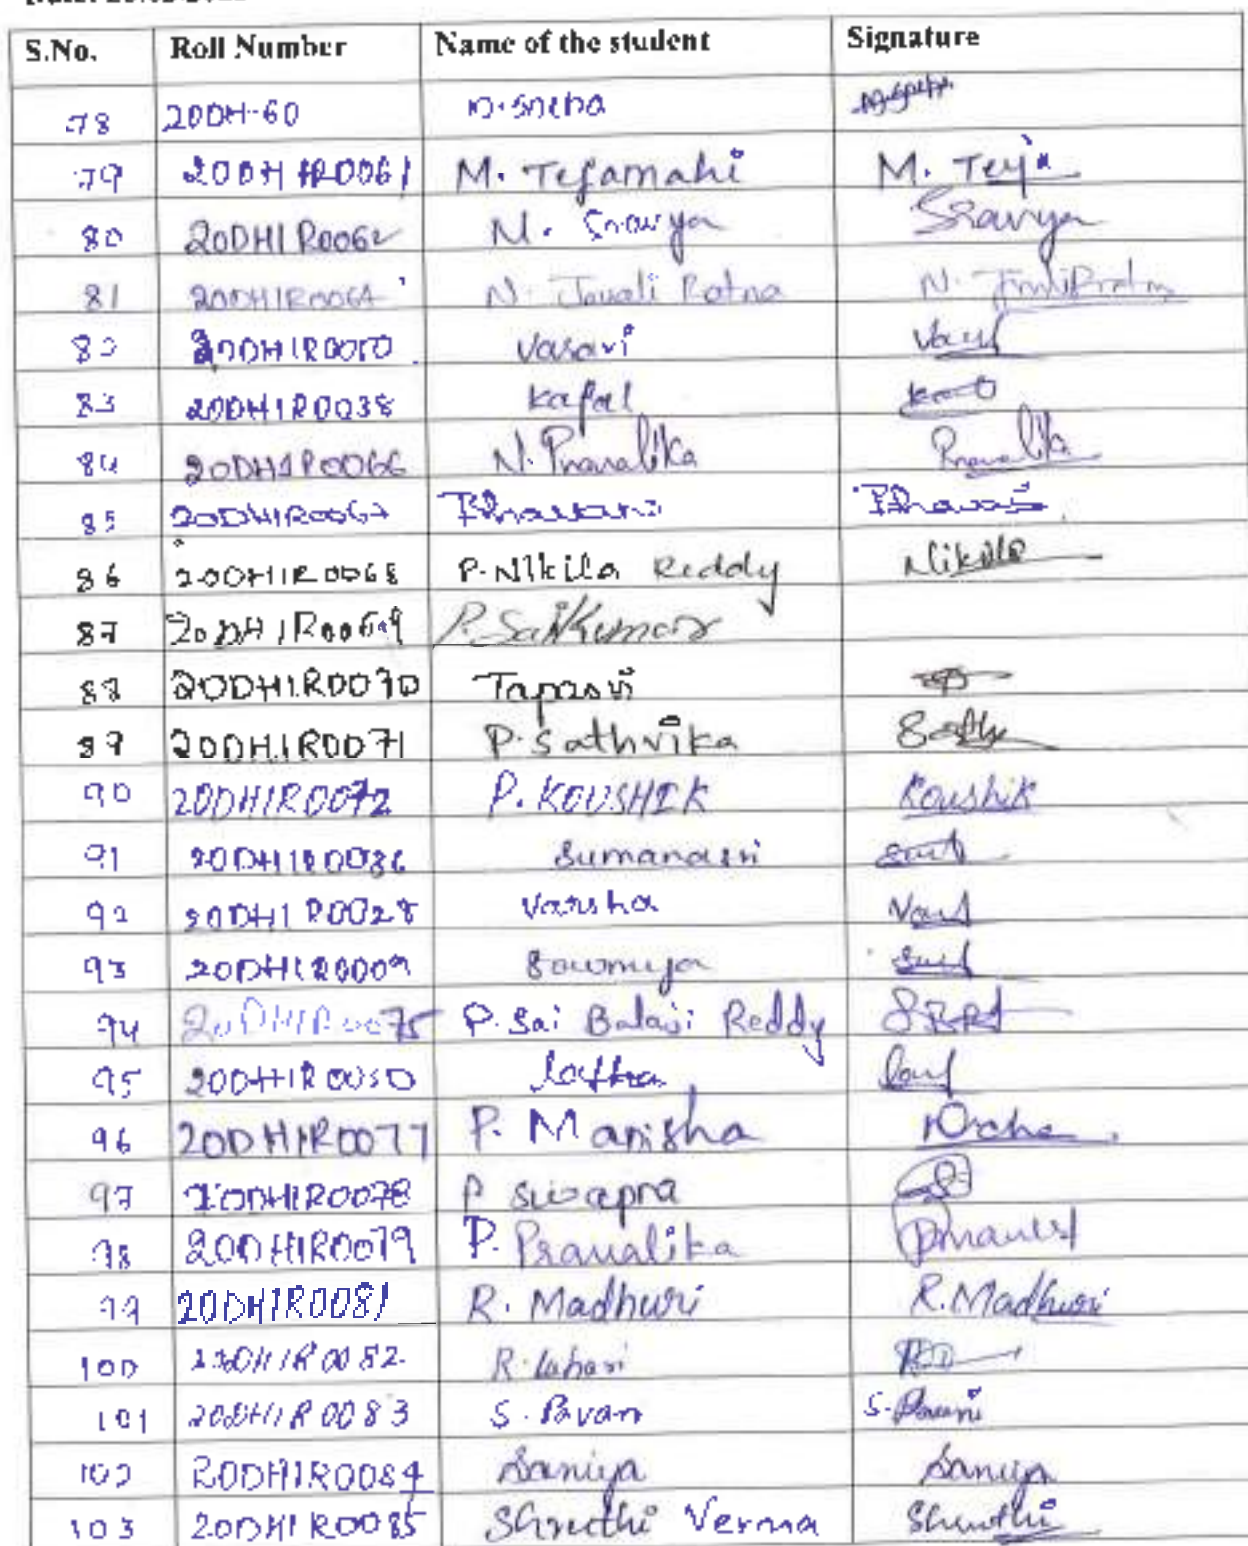 S.No. Roll Number Name of the student Signature
78 20DH-60 N. Sneha
79 20DH1R0061 M. Tejamahi M. Teja
80 20DH1R0062 N. Sravya Sravya
81 20DH1R0064 N. Javali Ratna
82 20DH1R0050 Vasavi
83 20DH1R0038 Kajal
84 20DH1R0066 N. Pravalika Pravalika
85 20DH1R0067 Bhavani
86 20DH1R0068 P. Nikila Reddy Nikila
87 20DH1R0069 P. SaiKumar
88 20DH1R0070 Tapasvi
89 20DH1R0071 P. Sathvika
90 20DH1R0072 P. KOUSHIK Koushik
91 20DH1R0036 Sumanasri
92 20DH1R0028 Varsha
93 20DH1R0009 Sowmya
94 20DH1R0075 P. Sai Balaji Reddy
95 20DH1R0050
96 20DH1R0077 P. Manisha
97 20DH1R0078 P Swapna
98 20DH1R0079 P. Pravalika
99 20DH1R0081 R. Madhuri R. Madhuri
100 20DH1R0082 R. Lahari
101 20DH1R0083 S. Pavani S. Pavani
102 20DH1R0084 Saniya Saniya
103 20DH1R0085 Shruthi Verma Shruthi